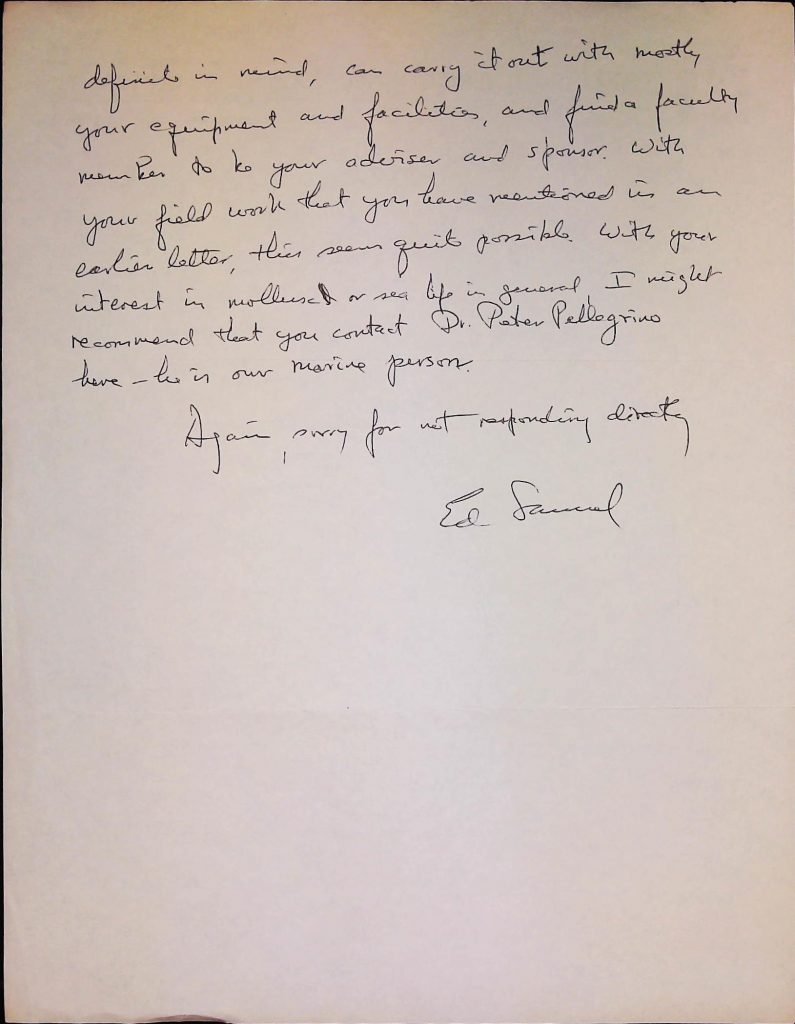 definite in mind, can carry it out with mostly
your equipment and facilities, and find a faculty
member to be your adviser and sponsor. With
your field work that you have mentioned in an
earlier letter, this seems quite possible. With your
interest in molluscs or sea life in general, I might
recommend that you contact Dr. Peter Pellegrino
here – he is our marine person.
Again, sorry for not responding directly
Ed Samuel